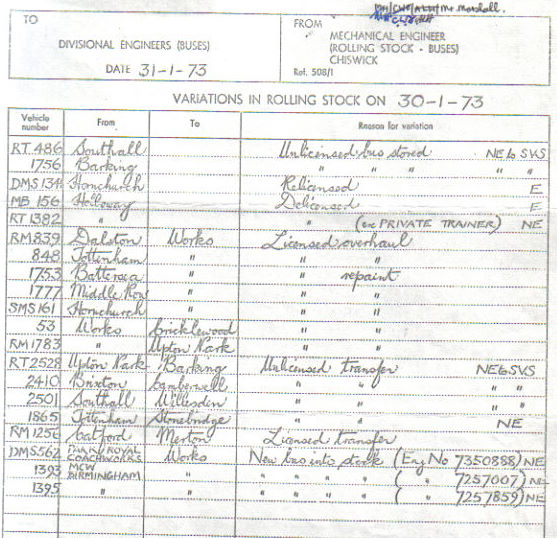 DH/CWO/ Mr Marshall.
TO
DIVISIONAL ENGINEERS (BUSES)
DATE 31-1-73
FROM
MECHANICAL ENGINEER
(ROLLING STOCK - BUSES)
CHISWICK
Ref. 508/1
VARIATIONS IN ROLLING STOCK ON 30-1-73
Vehicle number From To Reason for variation
RT 486 Southall Unlicensed bus stored NE to SVS
1756 Barking " " " " "
DMS 134 Hornchurch Relicensed E
MB 156 Holloway Delicensed E
RT 1382 " " (ex PRIVATE TRAINER) NE
RM 859 Dalston Works Licensed overhaul
848 Tottenham " " "
1753 Battersea " " repaint
1777 Middle Row " " "
SMS 161 Hornchurch " " "
53 Works Cricklewood " "
RM 1783 " Upton Park " "
RT 2528 Upton Park Barking Unlicensed transfer NE to SVS
2410 Brixton Camberwell " " " "
2501 Southall Willesden " " " "
1865 Tottenham Stonebridge " " NE
RM 1256 Catford Merton Licensed transfer
DMS 562 PARK ROYAL COACHWORKS Works New bus into stock (Eng No 7350888) NE
1393 MCW BIRMINGHAM " " " " " ( " 7257007) NE
1395 " " " " " " ( " 7257859) NE